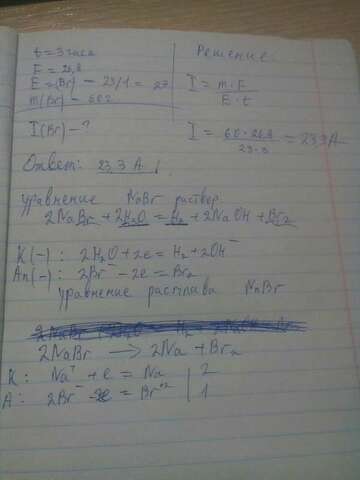 t = 3 часа
Решение:
F = 26,8
E = (Br) – 23/1 = 23
m(Br) – 60г
I = m·F / E·t
I(Br) – ?
I = 60·26,8 / 23·3 = 23,3A
Ответ: 23,3 A
уравнение NaBr раствор
2NaBr + 2H₂O = H₂ + 2NaOH + Br₂
K(–): 2H₂O + 2e = H₂ + 2OH⁻
An(–): 2Br⁻ – 2e = Br₂
уравнение расплава NaBr
2NaBr → 2Na + Br₂
K: Na⁺ + e = Na | 2
A: 2Br⁻ – 2e = Br⁺² | 1